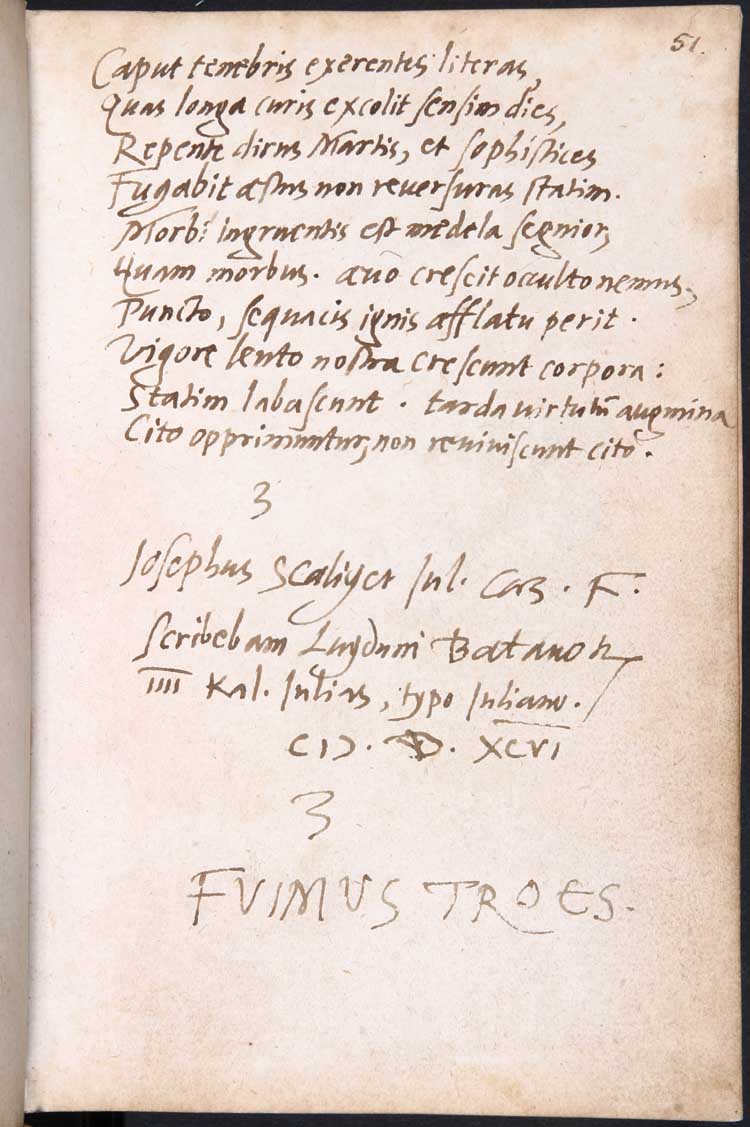 51.
Caput tenebris exerentis literas,
Quas longa curis excolit sensim dies,
Repente dirus Martis, et sophistices
Fugabit æstus non reversuras statim.
Morbi ingruentis est medela segnior,
Quam morbus. ævo crescit occulto nemus,
Puncto, sequacis ignis afflatu perit.
Vigore lento nostra crescunt corpora:
Statim labascunt. tarda virtutū augmina
Cito opprimuntur, non reviviscunt cito.
Josephus Scaliger Jul. Cæs. F.
scribebam Lugduni Batavoꝝ
IIII Kal. Julias, typo Juliano.
CIↃ. IↃ. XCVI
FVIMVS TROES.